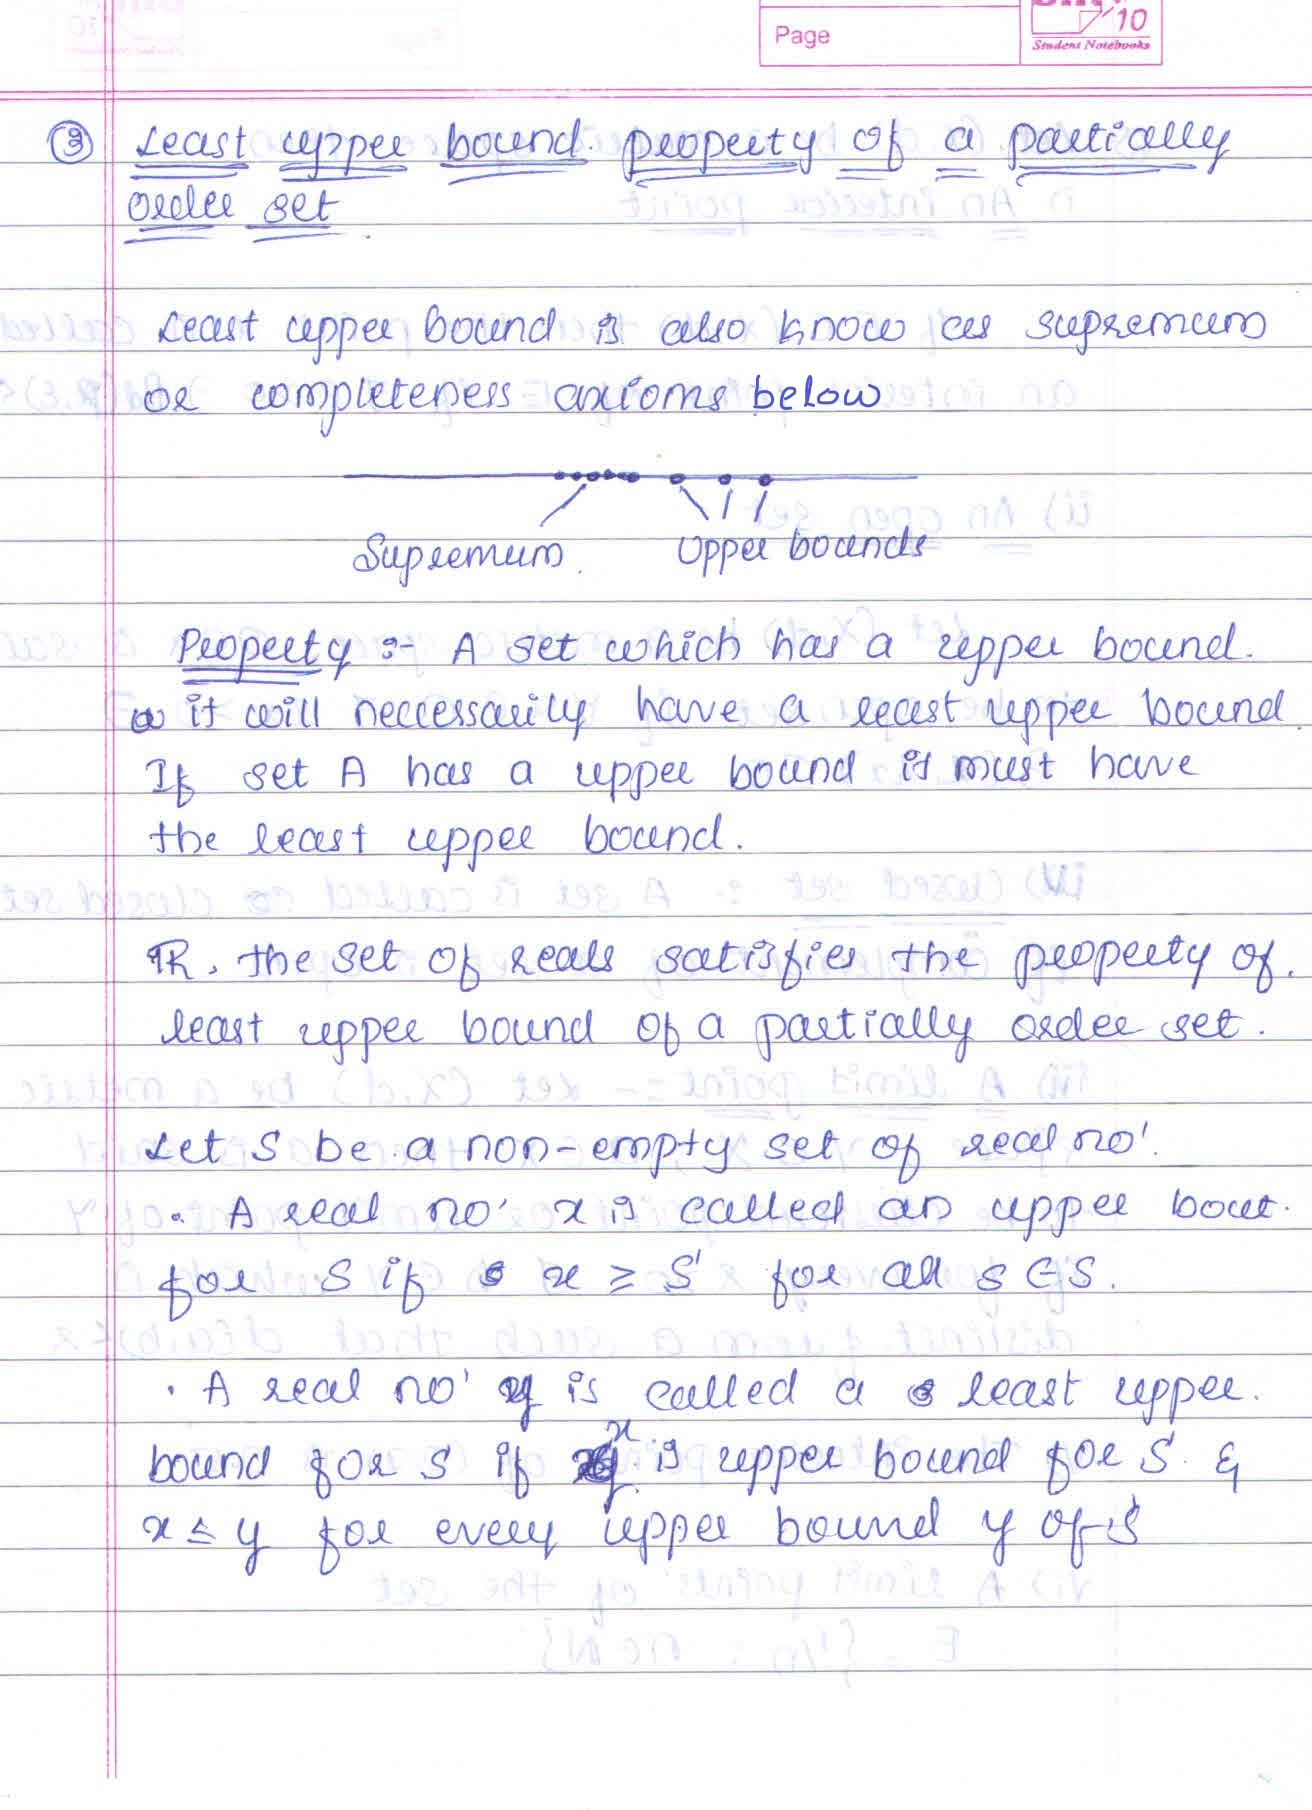 Page
10
Student Notebooks
③ Least upper bound property of a partially
order set
Least upper bound is also know as supremum
or completeness axioms below
Supremum. Upper bounds
Property :- A set which has a upper bound.
it will neccessarily have a least upper bound.
If set A has a upper bound it must have
the least upper bound.
ℝ, the set of reals satisfies the property of.
least upper bound of a partially order set.
Let S be a non-empty set of real no'.
• A real no' x is called an upper bout.
for S if x ≥ S' for all s ∈ S.
• A real no' y is called a least upper.
bound for S if x is upper bound for S &
x ≤ y for every upper bound y of S